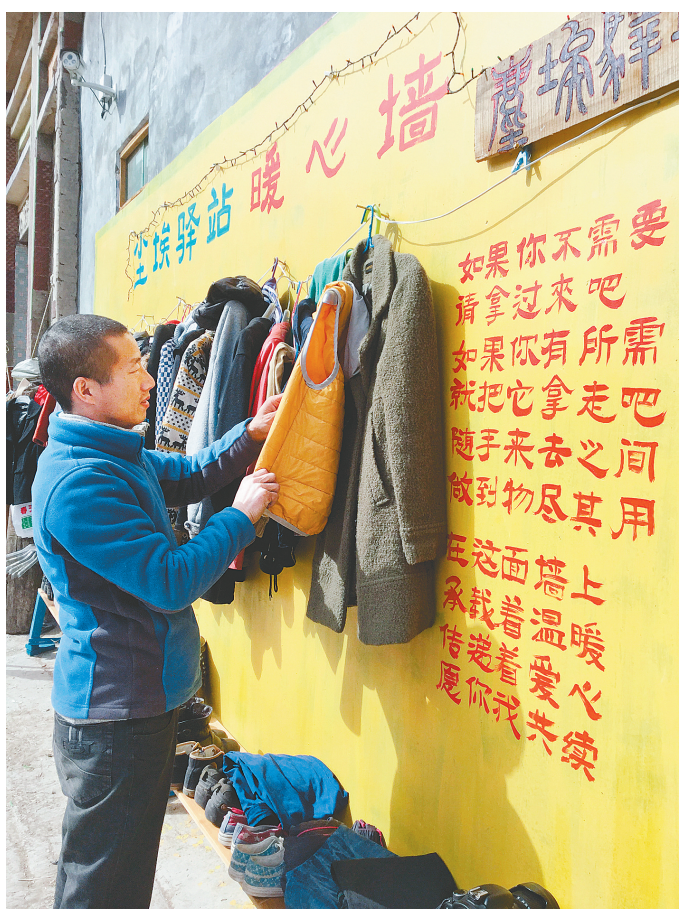 塵埃驛
尘埃驿站 暖心墙
如果你不需要
请拿过来吧
如果你有所需
就把它拿走吧
随手来去之间
做到物尽其用
在这面墙上
承载着温暖
传递着爱心
愿你我共续